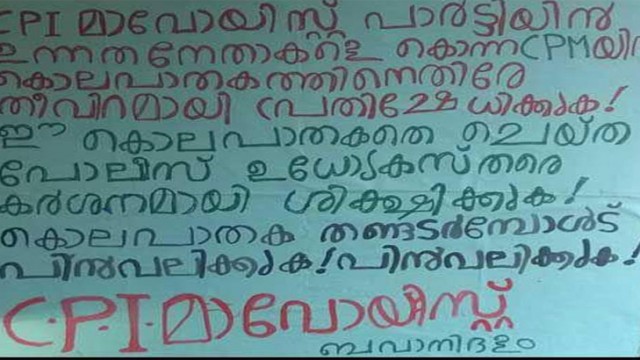 CPI മാവോയിസ്റ്റ് പാർട്ടിയിൻ
ഉന്നതനേതാകളെ കൊന്നCPMയിൻ
കൊലപാതകത്തിനെതിരേ
തീവിറമായി പ്രതിഷേധിക്കുക!
ഈ കൊലപാതകതെ ചെയ്ത
പോലീസ് ഉധോടകസ്തരെ
കർശനമായി ശിക്ഷിക്കുക!
കൊലപാതക തണ്ടർമ്പോൾട്
പിൻവലിക്കുക! പിൻവലിക്കുക!
C.P.I.മാവോയിസ്റ്റ്
ബവാനിദളം